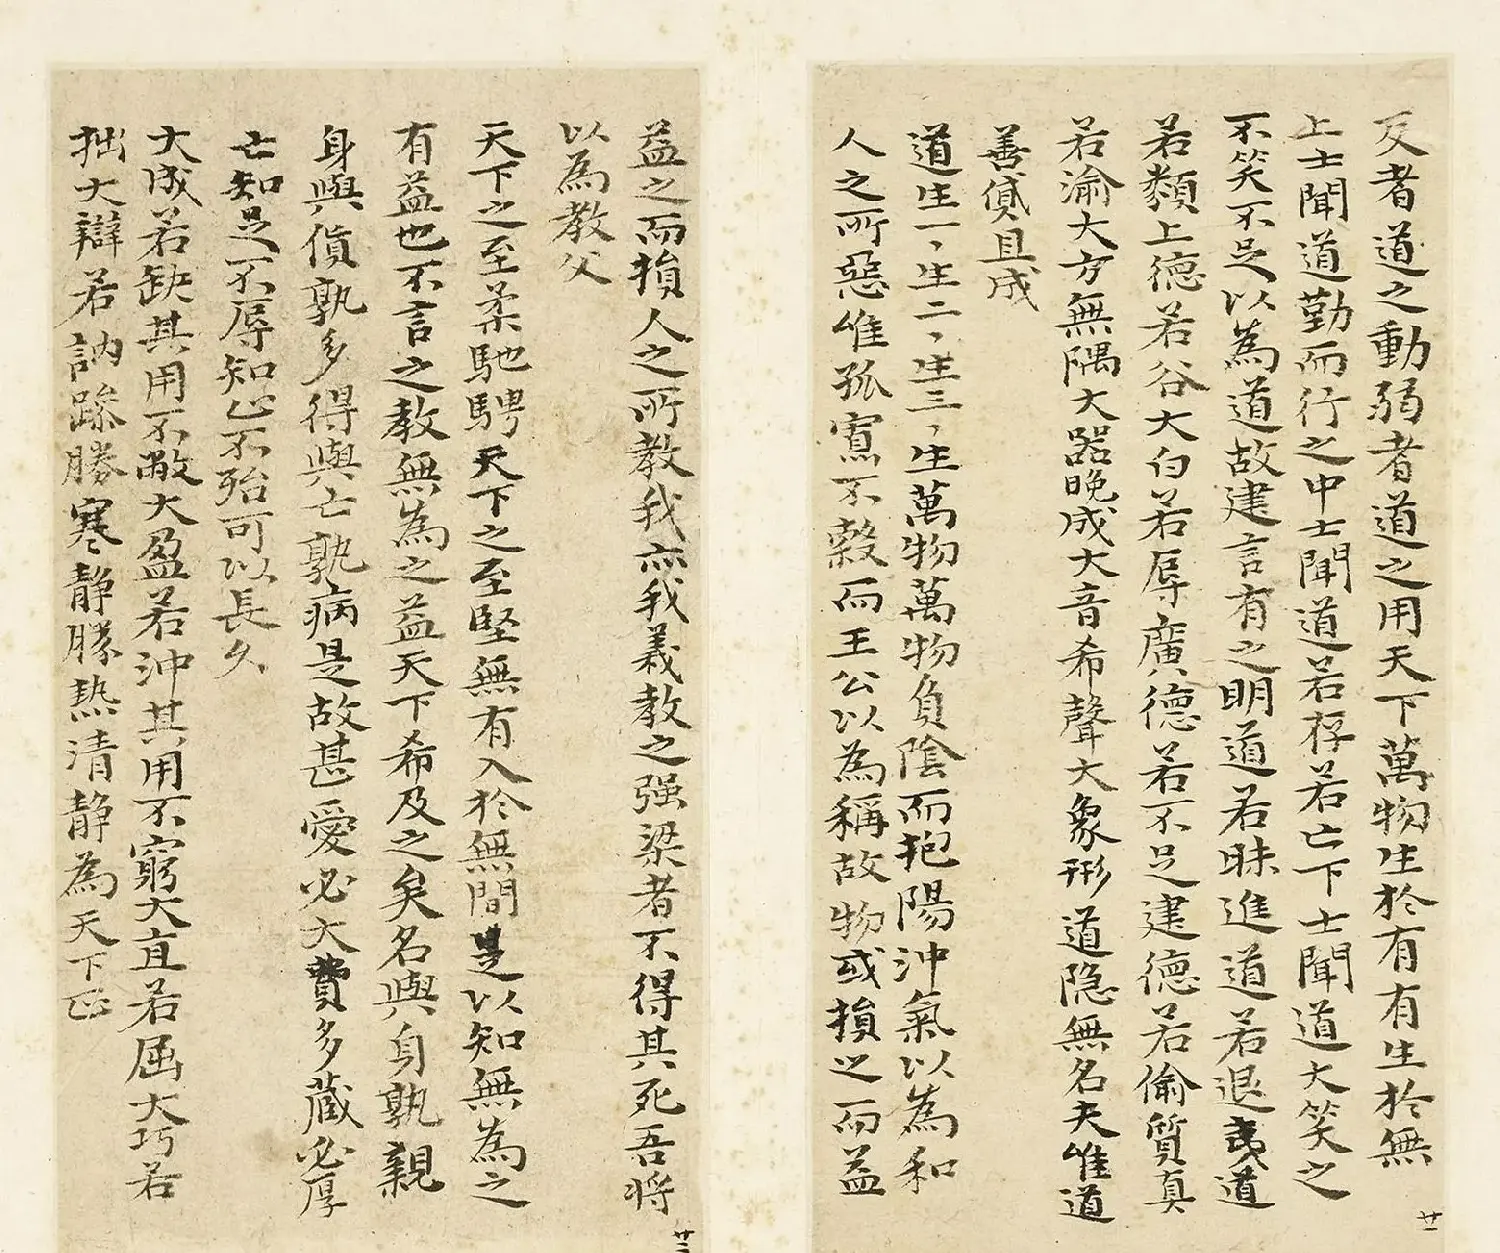 反者道之動弱者道之用天下萬物生於有有生於無
上士聞道勤而行之中士聞道若存若亡下士聞道大笑之
不笑不足以為道故建言有之明道若昧進道若退夷道
若類上德若谷大白若辱廣德若不足建德若偷質真
若渝大方無隅大器晚成大音希聲大象形道隱無名夫惟道
善貸且成
道生一、生二、生三、生萬物萬物負陰而抱陽沖氣以為和
人之所惡惟孤寡不穀而王公以為稱故物或損之而益
廿一
益之而損人之所教我亦我義教之强梁者不得其死吾将
以為教父
天下之至柔馳騁天下之至堅無有入於無間是以知無為之
有益也不言之教無為之益天下希及之矣名與身孰親
身與貨孰多得與亡孰病是故甚愛必大費多藏必厚
亡知足不辱知止不殆可以長久
大成若缺其用不敝大盈若沖其用不窮大直若屈大巧若
拙大辯若訥躁勝寒静勝熱清静為天下正
廿二